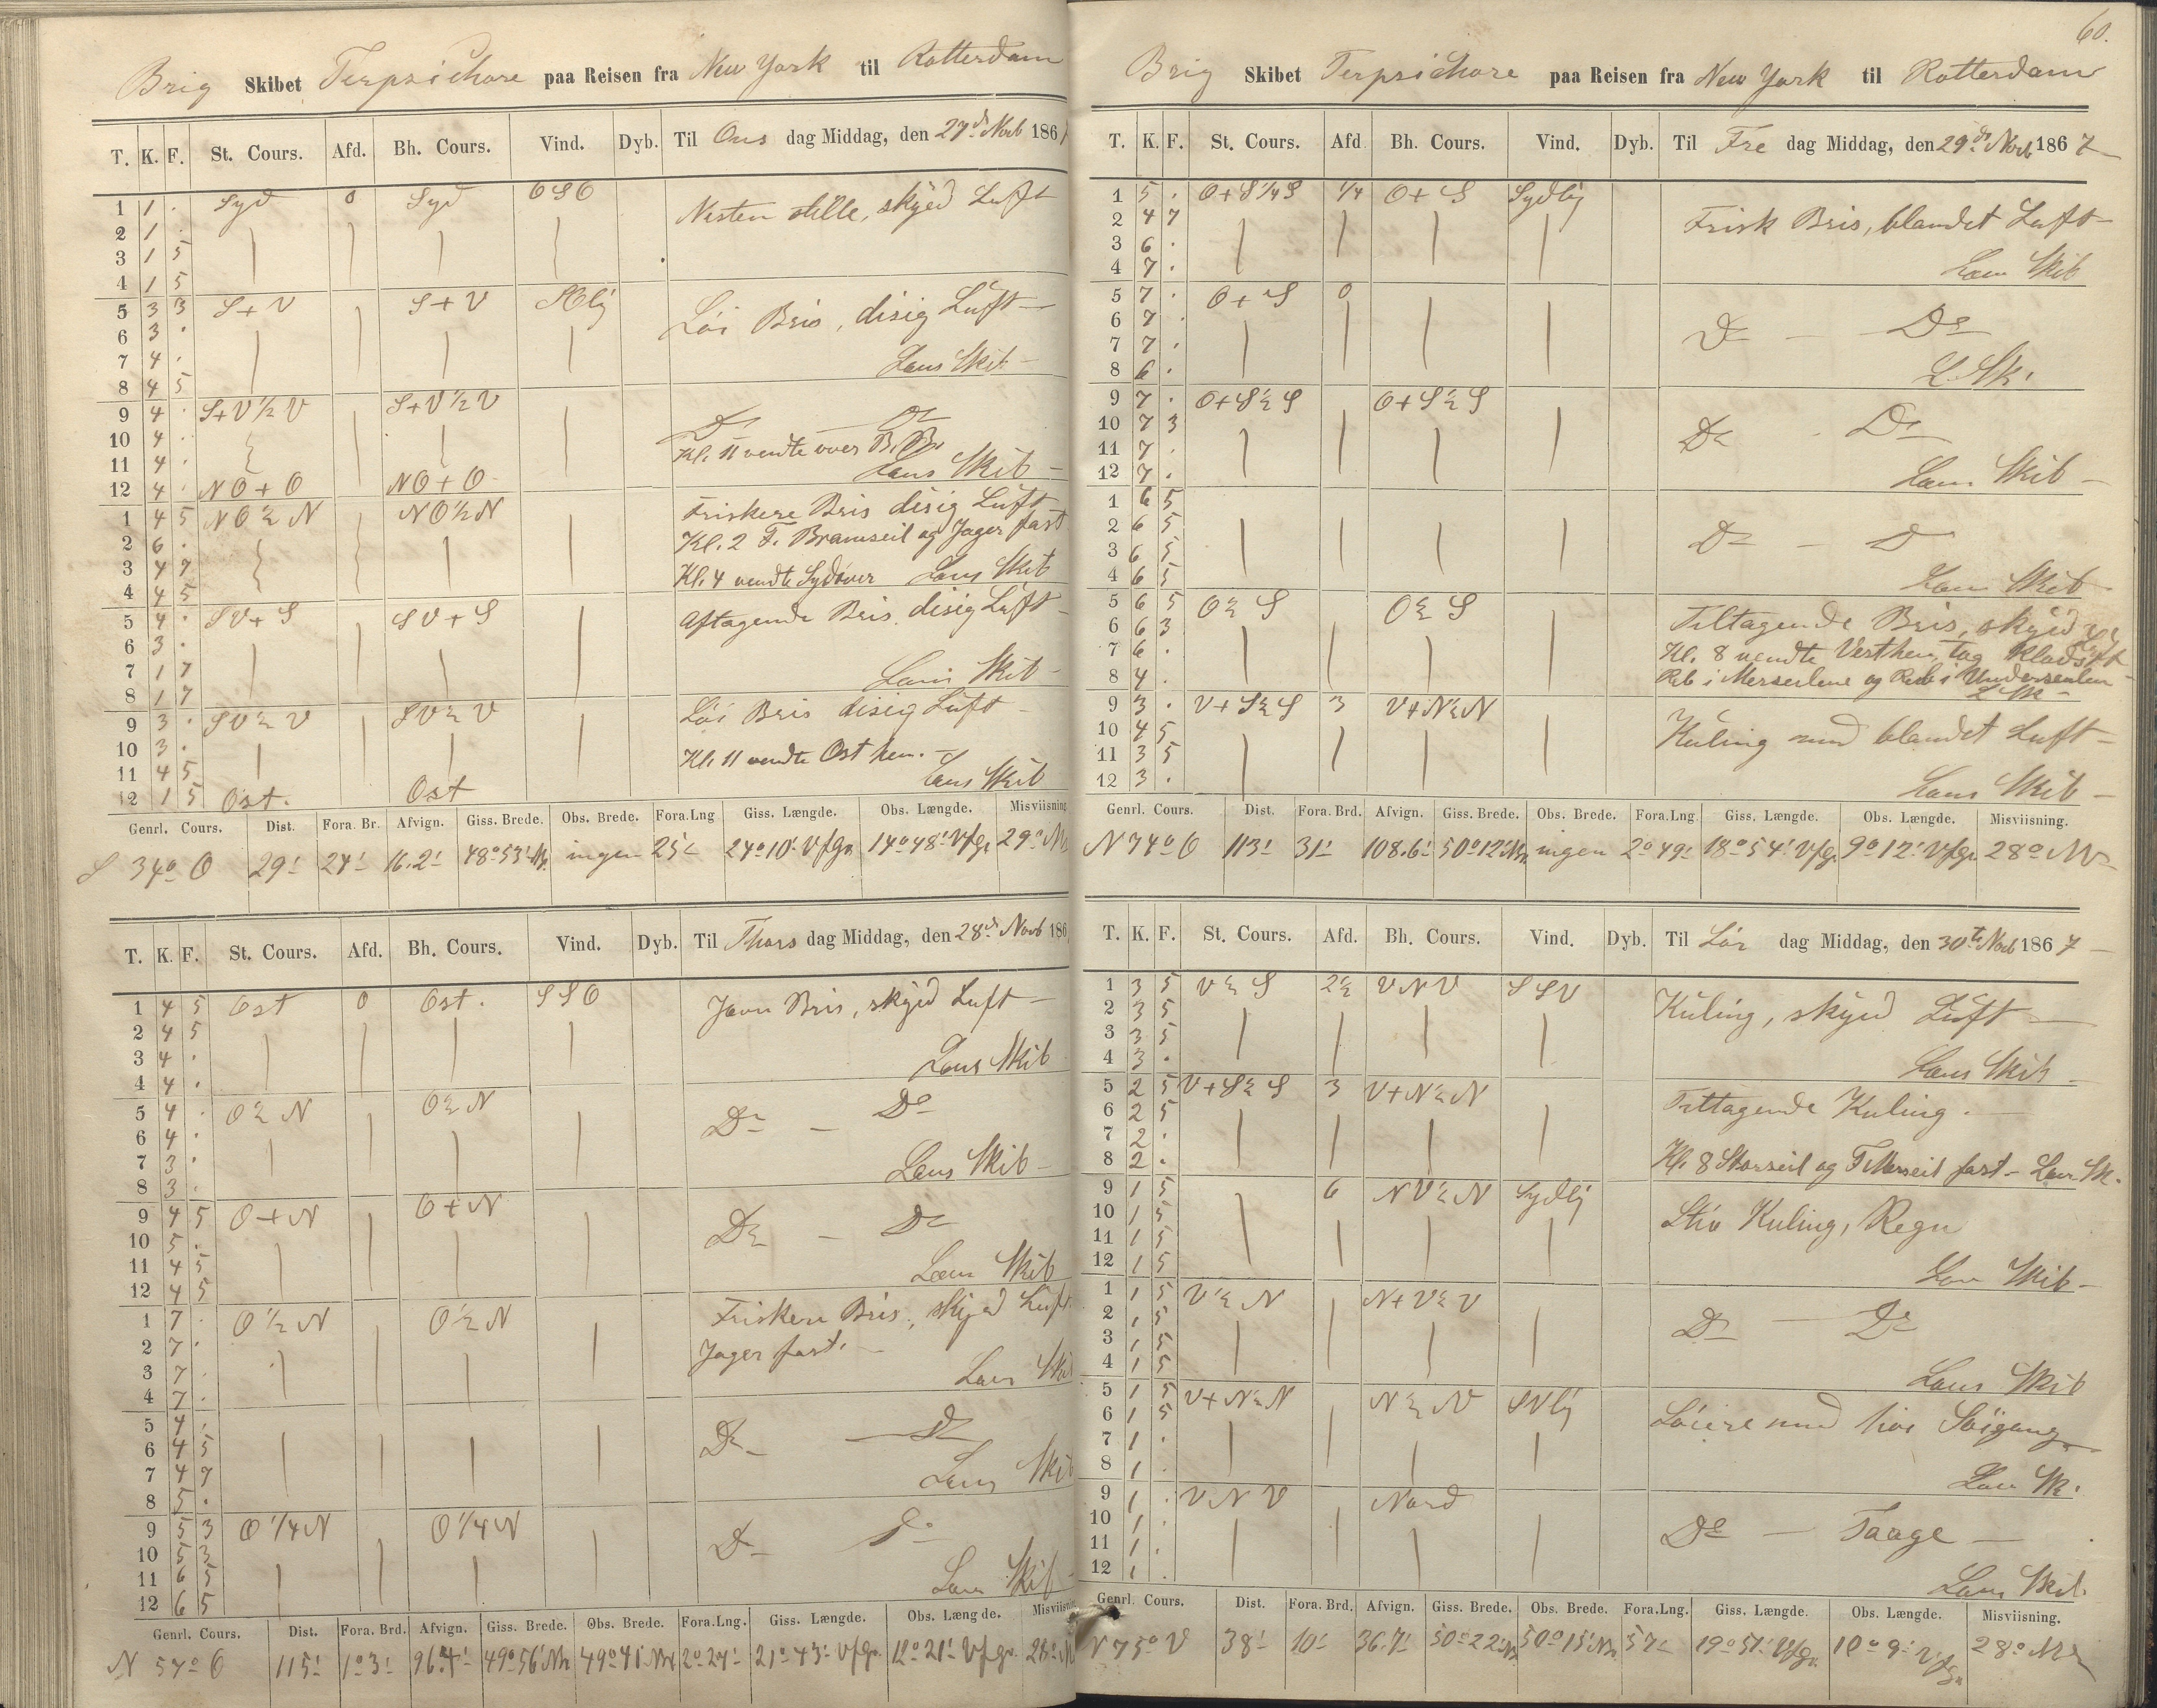 60.
Brig Skibet Terpsichore paa Reisen fra New York til Rotterdam
T. K. F. St. Cours. Afd. Bh. Cours. Vind. Dyb. Til Ons dag Middag, den 27de Novb 1867
1 1 . Syd 0 Syd OSO Nesten stille, skyed Luft
2 1 .
3 1 5
4 1 5
5 3 3 S+V S+V SOlig Löi Bris, disig Luft
6 3 .
7 4 . Lens Skib
8 4 5
9 4 . S+V½V S+V½V Do Do
10 4 . Kl. 11 vendte over B.B.
11 4 . Lens Skib
12 4 . NO+O NO+O
1 4 5 NO½N NO½N Friskere Bris disig Luft
2 6 . Kl. 2 F. Bramseil og Jager fast
3 4 7
4 4 5 Kl. 4 vendte Sydover Lens Skib
5 4 . SV+S SV+S Aftagende Bris, disig Luft
6 3 .
7 1 7 Lens Skib
8 1 7
9 3 . SV½V SV½V Löi Bris disig Luft
10 3 .
11 4 5 Kl. 11 vendte Ost hen.
12 1 5 Ost. Ost Lens Skib
Genrl. Cours. Dist. Fora. Br. Afvign. Giss. Brede. Obs. Brede. Fora.Lng Giss. Længde. Obs. Længde. Misviisning
S 34° O 29' 24' 16.2' 48°53' Nr. ingen 25' 24°10' V f Gr. 14°48' V f Gr. 29° Nr
T. K. F. St. Cours. Afd. Bh. Cours. Vind. Dyb. Til Thors dag Middag, den 28de Novb 186
1 4 5 Ost 0 Ost. SSO Jevn Bris, skyed Luft
2 4 5
3 4 . Lens Skib
4 4 .
5 4 . O½N O½N Do Do
6 4 .
7 3 . Lens Skib
8 3 .
9 4 5 O+N O+N Do Do
10 5 .
11 4 5 Lens Skib
12 4 5
1 7 . O½N O½N Friskere Bris, skyed Luft
2 7 . Jager fast.
3 7 . Lens Skib
4 7 .
5 4 . Do Do
6 4 5
7 4 7 Lens Skib
8 5 .
9 5 3 O¼N O¼N Do Do
10 5 3
11 6 5 Lens Skib
12 6 5
Genrl. Cours. Dist. Fora. Brd. Afvign. Giss. Brede. Obs. Brede. Fora.Lng. Giss. Længde. Obs. Længde. Misviisning
N 57° O 115' 1°3' 96.4' 49°56' Nr 49°41' Nr 2°27' 21°43' V f Gr. 12°21' V f Gr. 28° N
Brig Skibet Terpsichore paa Reisen fra New York til Rotterdam
T. K. F. St. Cours. Afd Bh. Cours. Vind. Dyb. Til Fre dag Middag, den 29de Novb 1867
1 5 . O+S¼S ¼ O+S Sydlig Frisk Bris, blandet Luft
2 4 7
3 6 .
4 7 . Lens Skib
5 7 . O+S 0 Do Do
6 7 .
7 7 .
8 6 . L. Sk.
9 7 . O+S½S O+S½S Do Do
10 7 3
11 7 .
12 7 . Lens Skib
1 6 5
2 6 5 Do D
3 6 5
4 6 5 Lens Skib
5 6 5 O½S O½S Tiltagende Bris, skyed Luft
6 6 3 Kl. 8 vendte Vesthen, tog Klads
7 6 . Reb i Merseilene og Reb i Underseilen
8 4 . L Sk
9 3 . V+S½S 3 V+N½N Kuling med blandet Luft
10 4 5
11 3 5
12 3 . Lens Skib
Genrl. Cours. Dist. Fora. Brd. Afvign. Giss. Brede. Obs. Brede. Fora.Lng. Giss. Længde. Obs. Længde. Misviisning.
N 74° O 113' 31' 108.6' 50°12' Nr. ingen 2°49' 18°54' V f Gr. 9°12' V f Gr. 28° Nr
T. K. F. St. Cours. Afd. Bh. Cours. Vind. Dyb. Til Lör dag Middag, den 30te Novb 1867
1 3 5 V½S 2½ VNV SSV Kuling, skyed Luft
2 3 5
3 3 5
4 3 . Lens Skib
5 2 5 V+S½S 3 V+N½N Tiltagende Kuling.
6 2 5
7 2 .
8 2 . Kl. 8 Storseil og F Merseil fast Lens Sk.
9 1 5 6 NV½N Sydlig Stiv Kuling, Regn
10 1 5
11 1 5
12 1 5 Lens Skib
1 1 5 V½N N+V½V Do Do
2 1 5
3 1 5
4 1 5 Lens Skib
5 1 5 V+N½N N½V SVlig Löiere med höi Söigang
6 1 5
7 1 .
8 1 . Lens Sk.
9 1 . VNV Nord Do Taage
10 1 .
11 1 .
12 1 . Lens Skib.
Genrl. Cours. Dist. Fora. Brd. Afvign. Giss. Brede. Obs. Brede. Fora.Lng. Giss. Længde. Obs. Længde. Misviisning.
N 75° V 38' 10' 36.7' 50°22' Nr. 50°15' Nr. 57' 19°51' V f Gr. 10°9' V f Gr. 28° Nr